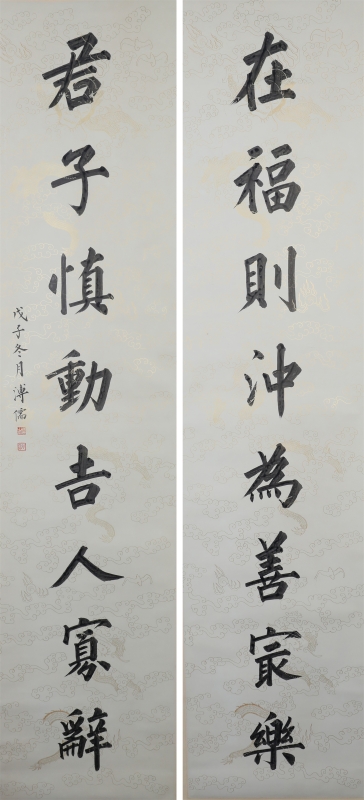 在福則沖為善㝡樂
君子慎動吉人寡辭
戊子冬月溥儒